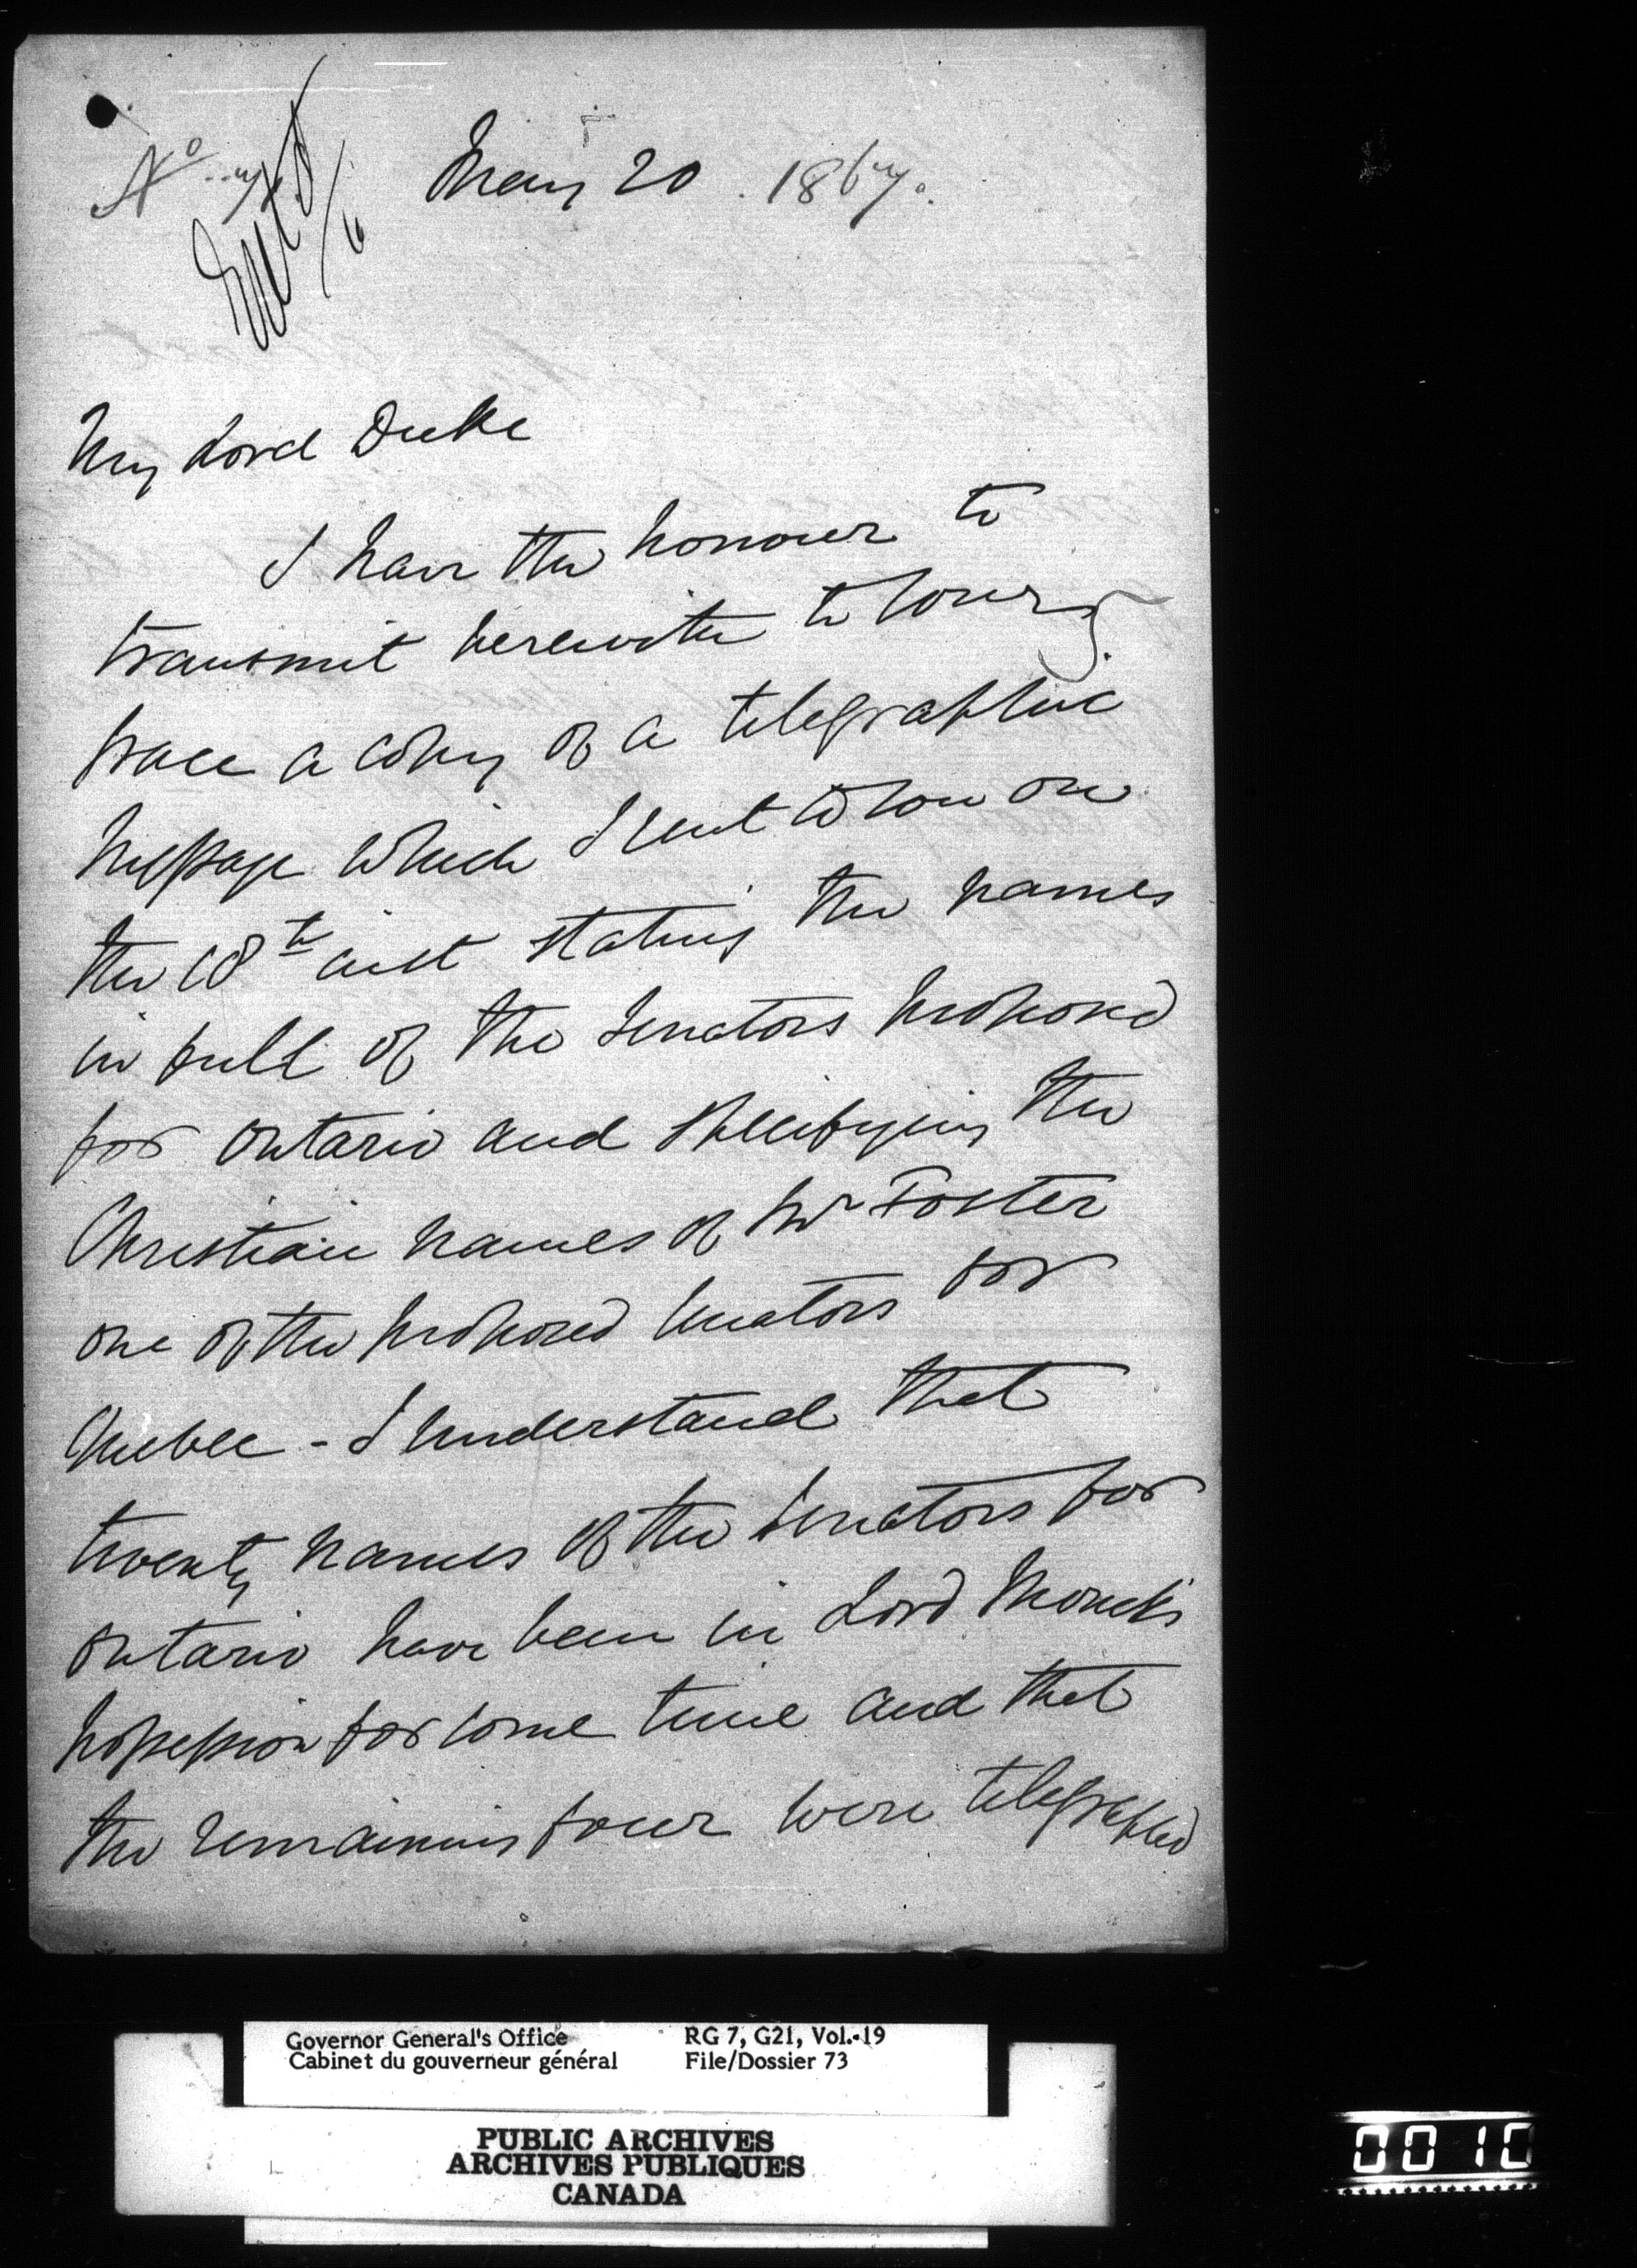 No
May 20. 1867.
My Lord Duke
I have the honour to
transmit herewith to Your
Grace a copy of a telegraphic
Message which I sent to You on
the 18th inst stating the names
in full of the Senators proposed
for Ontario and specifying the
Christian names of Mr Foster
one of the proposed Senators for
Quebec - I understand that
twenty names of the Senators for
Ontario have been in Lord Monck's
possession for some time and that
the remaining four were telegraphed
Governor General's Office RG 7, G21, Vol. 19
Cabinet du gouverneur général File/Dossier 73
PUBLIC ARCHIVES
ARCHIVES PUBLIQUES
CANADA
0010